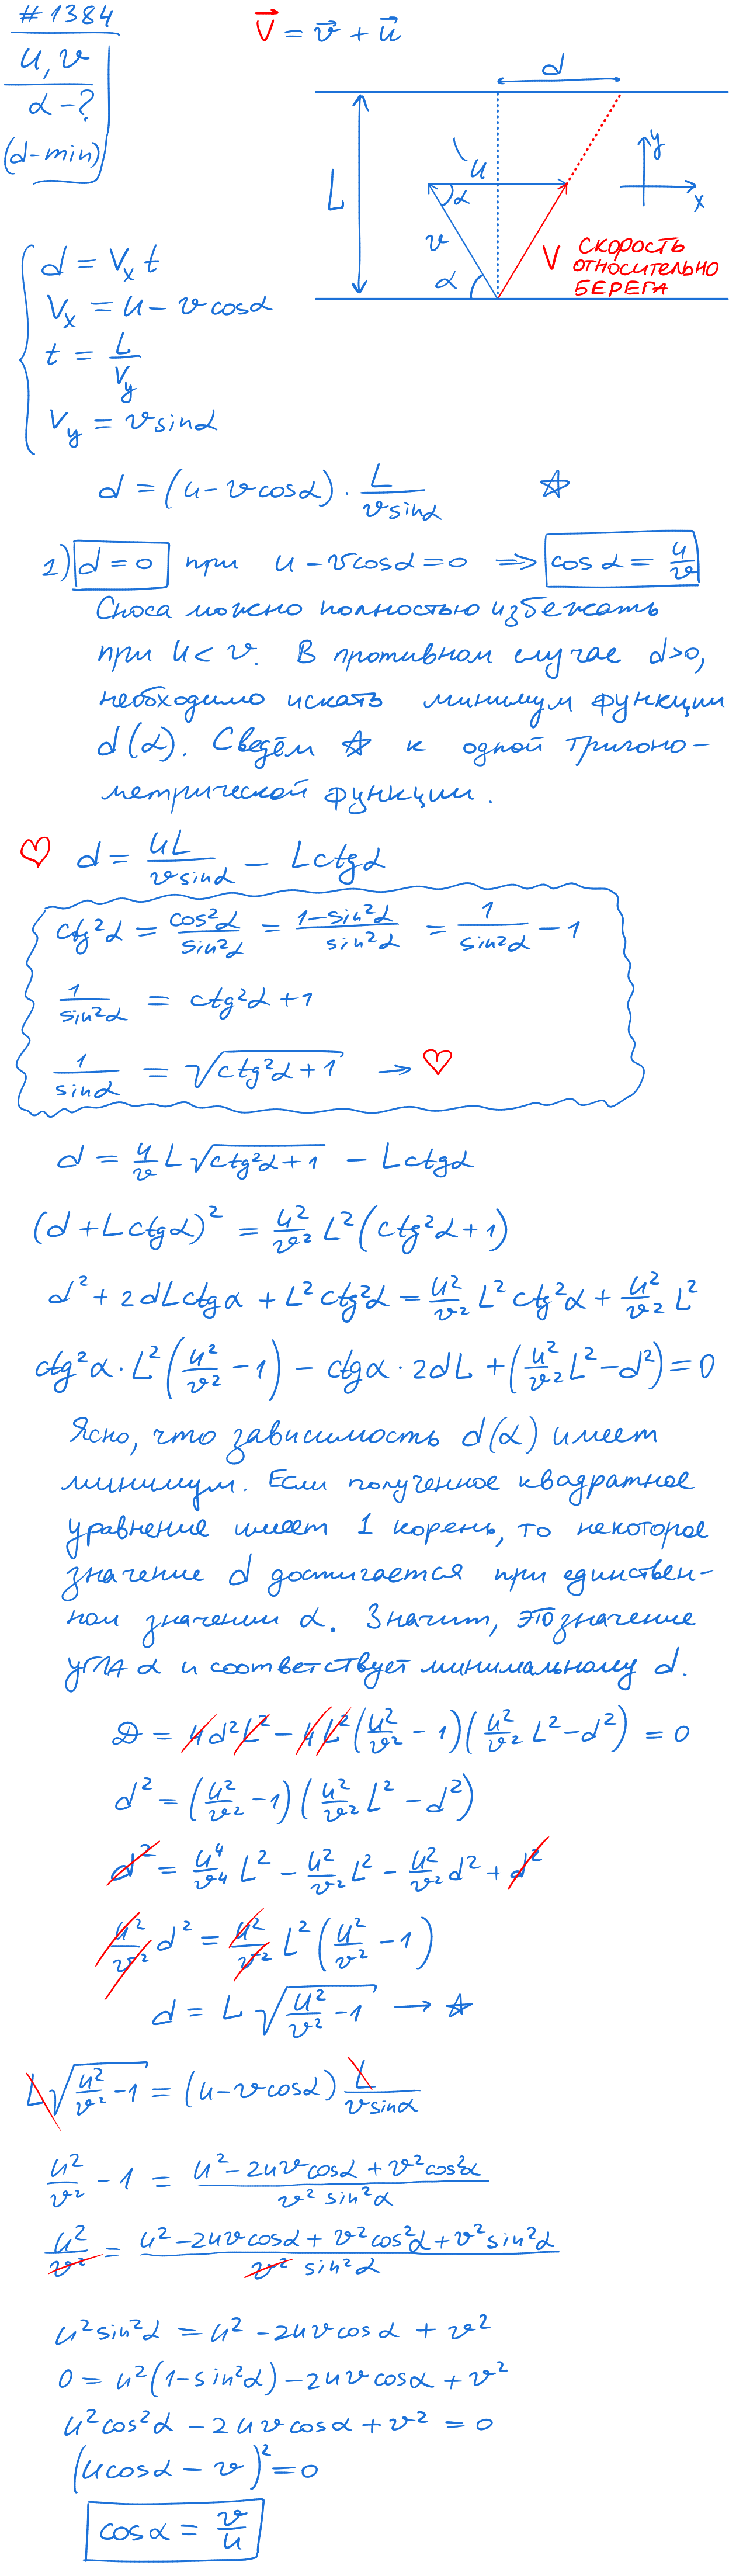 #1384
u, v
α-?
(d-min)
V⃗ = v⃗ + u⃗
d
L
u
α
v
α
y
x
V СКОРОСТЬ
ОТНОСИТЕЛЬНО
БЕРЕГА
d = Vₓ t
Vₓ = u - v cosα
t = L/V_y
V_y = v sinα
d = (u - v cosα) · L/(v sinα) ☆
1) d = 0 при u - v cosα = 0 ⇒ cos α = u/v
Сноса можно полностью избежать
при u < v. В противном случае d>0,
необходимо искать минимум функции
d(α). Сведём ☆ к одной тригоно-
метрической функции.
♡ d = uL/(v sinα) - L ctgα
ctg²α = cos²α/sin²α = (1-sin²α)/sin²α = 1/sin²α - 1
1/sin²α = ctg²α + 1
1/sinα = √(ctg²α + 1) → ♡
d = u/v L √(ctg²α + 1) - L ctgα
(d + L ctgα)² = u²/v² L² (ctg²α + 1)
d² + 2dL ctgα + L² ctg²α = u²/v² L² ctg²α + u²/v² L²
ctg²α · L² (u²/v² - 1) - ctgα · 2dL + (u²/v² L² - d²) = 0
Ясно, что зависимость d(α) имеет
минимум. Если полученное квадратное
уравнение имеет 1 корень, то некоторое
значение d достигается при единствен-
ном значении α. Значит, это значение
угла α и соответствует минимальному d.
D = 4d²L² - 4L² (u²/v² - 1)(u²/v² L² - d²) = 0
d² = (u²/v² - 1)(u²/v² L² - d²)
d² = u⁴/v⁴ L² - u²/v² L² - u²/v² d² + d²
u²/v² d² = u²/v² L² (u²/v² - 1)
d = L √(u²/v² - 1) → ☆
L√(u²/v² - 1) = (u - v cosα) L/(v sinα)
u²/v² - 1 = (u² - 2uv cosα + v² cos²α)/(v² sin²α)
u²/v² = (u² - 2uv cosα + v² cos²α + v² sin²α)/(v² sin²α)
u² sin²α = u² - 2uv cos α + v²
0 = u² (1 - sin²α) - 2uv cosα + v²
u² cos²α - 2uv cosα + v² = 0
(u cosα - v)² = 0
cosα = v/u